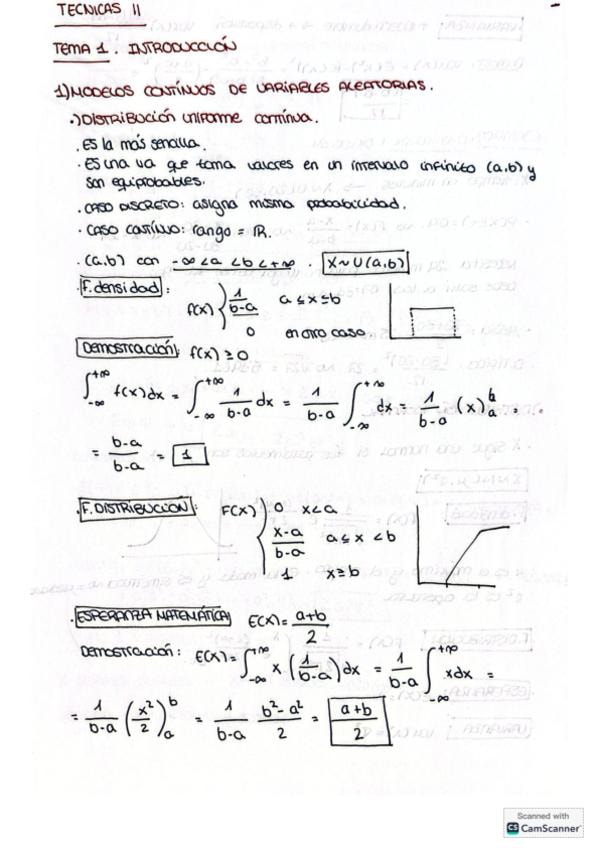 TECNICAS II
TEMA 1. INTRODUCCIÓN
1) MODELOS CONTINUOS DE VARIABLES ALEATORIAS.
.) DISTRIBUCIÓN UNIFORME CONTINUA.
. Es la más sencilla.
. Es una va que toma valores en un intervalo infinito (a,b) y
son equiprobables.
. CASO DISCRETO: asigna misma probabilidad.
. CASO CONTÍNUO: rango = ℝ.
. (a,b) con -∞<a<b<+∞. X~U(a,b)
. F. densidad:
f(x) { 1/(b-a) a≤x≤b
0 en otro caso
DEMOSTRACIÓN: f(x) ≥ 0
∫_{-∞}^{+∞} f(x)dx = ∫_{-∞}^{+∞} 1/(b-a) dx = 1/(b-a) ∫_{-∞}^{+∞} dx = 1/(b-a) (x)_a^b =
= (b-a)/(b-a) = 1
. F. DISTRIBUCIÓN: F(x) { 0 x<a
(x-a)/(b-a) a≤x<b
1 x≥b
. ESPERANZA MATEMÁTICA E(X) = (a+b)/2
DEMOSTRACIÓN: E(X) = ∫_{-∞}^{+∞} x (1/(b-a)) dx = 1/(b-a) ∫_{-∞}^{+∞} xdx =
= 1/(b-a) (x²/2)_a^b = 1/(b-a) (b²-a²)/2 = (a+b)/2
Scanned with
CS CamScanner